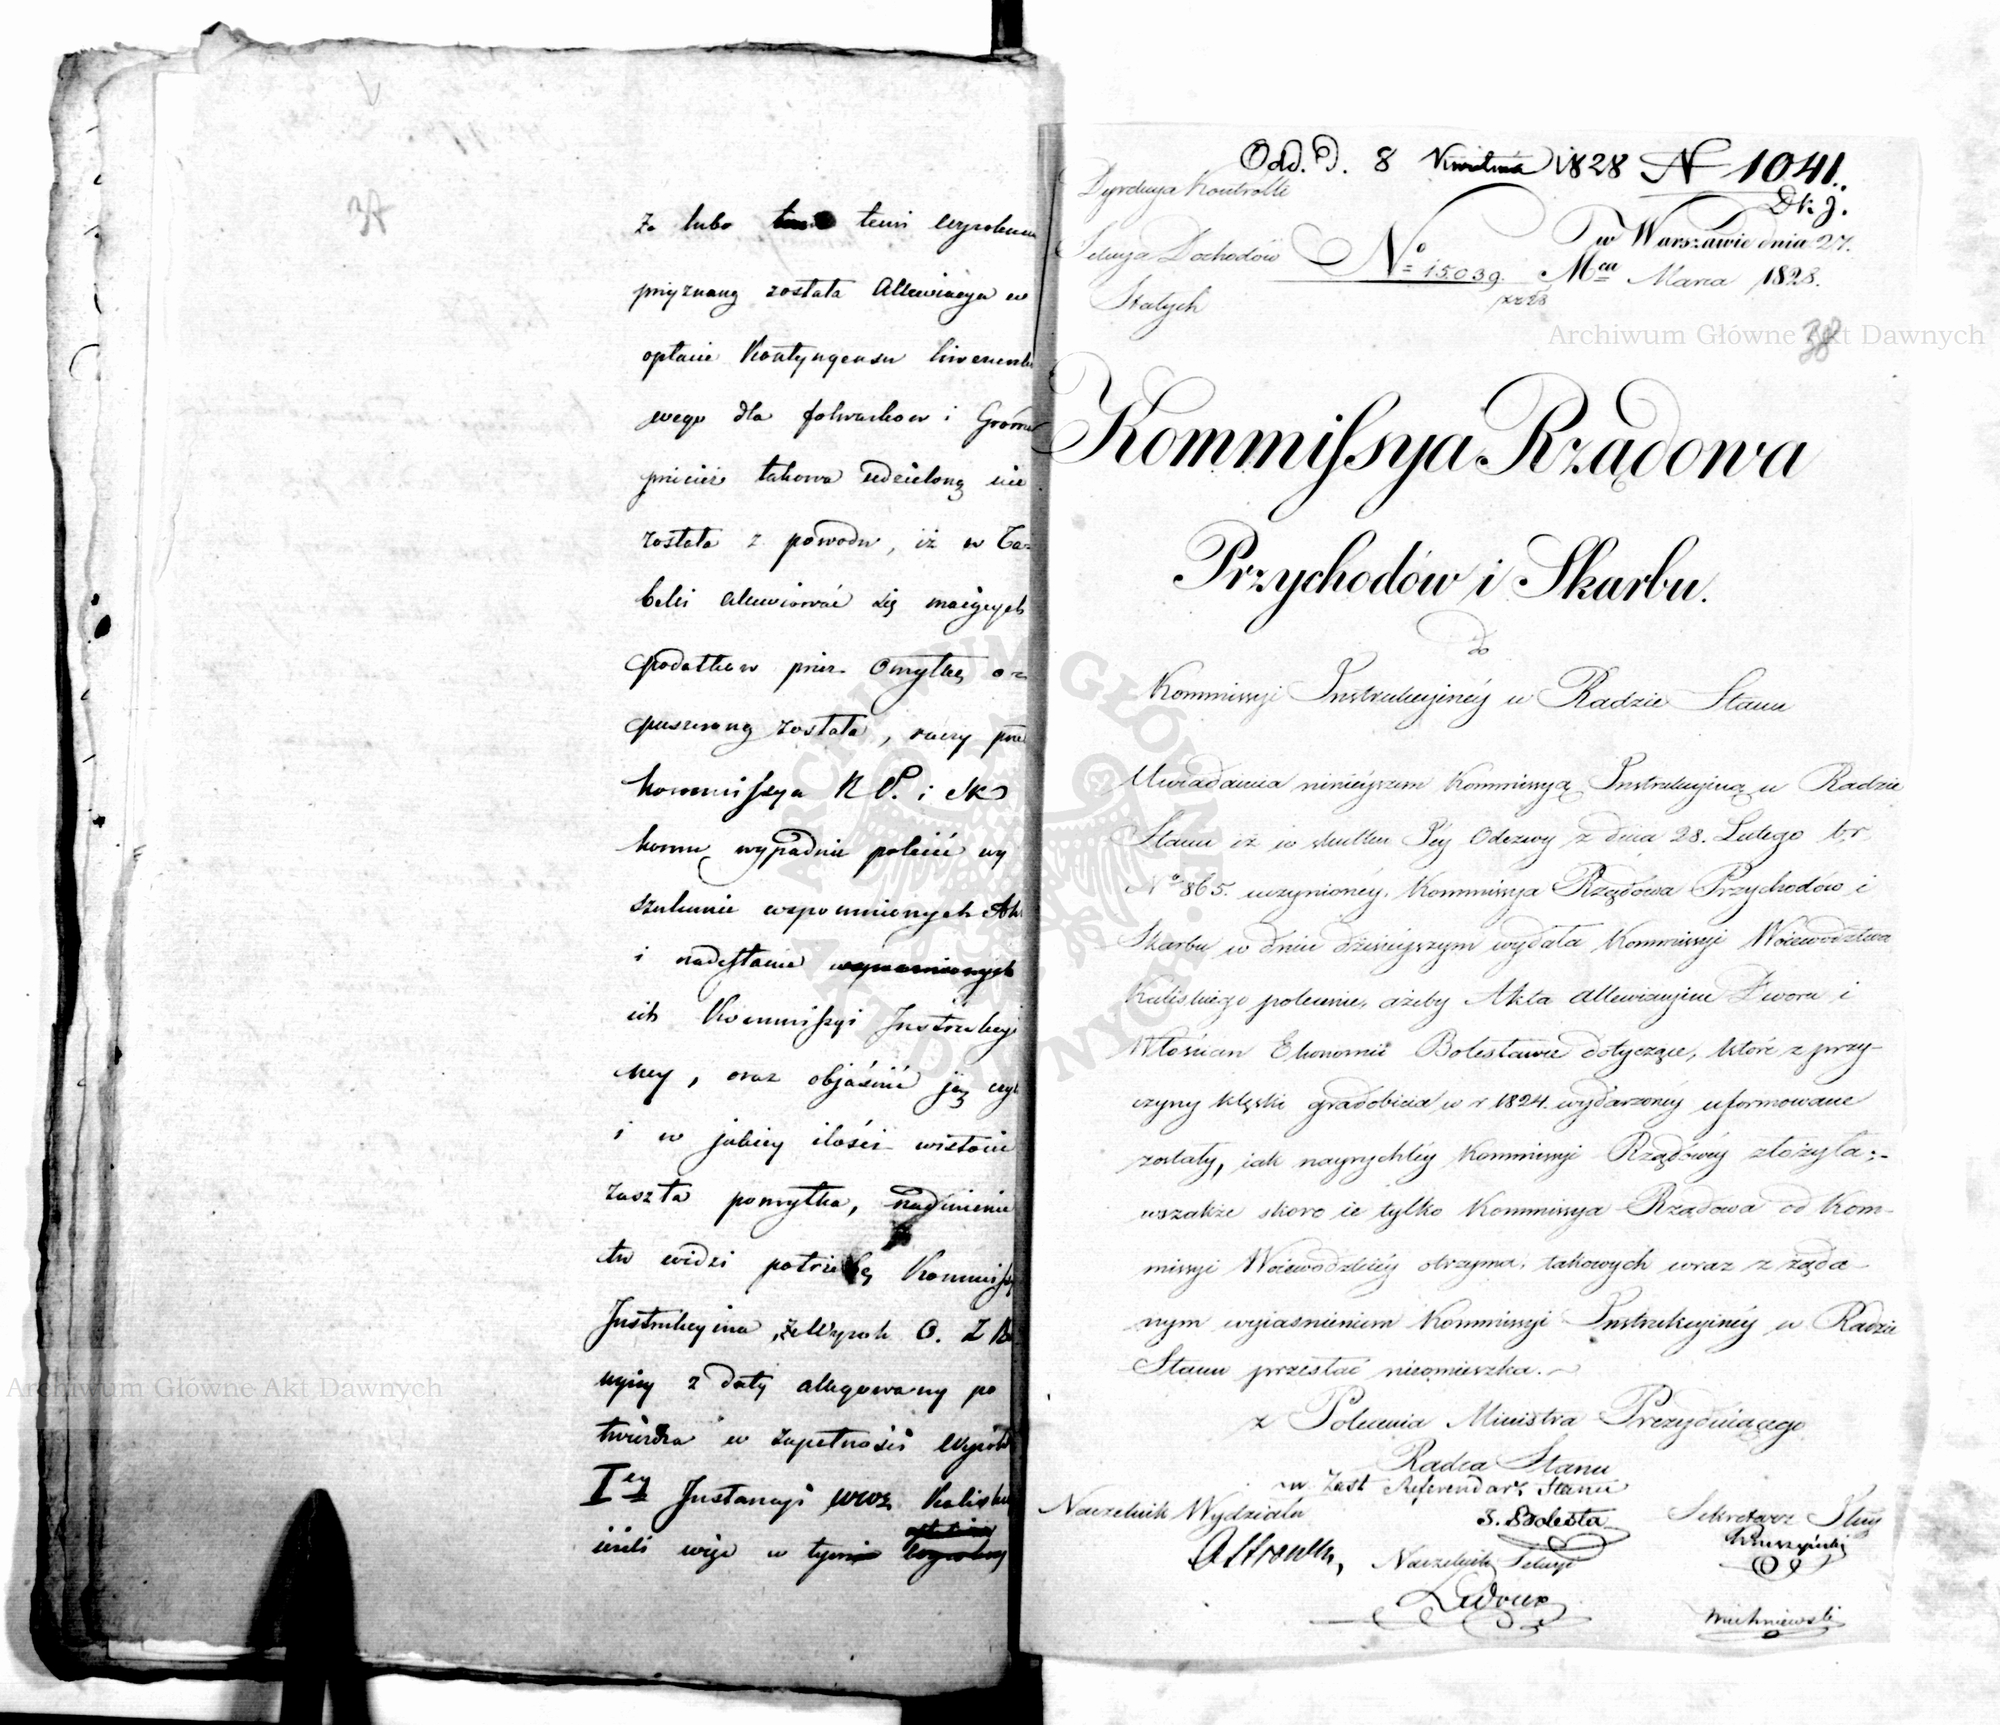 37
Za lubo temi wyrokami
przyznaną została Allewiacya w
opłacie Kontyngensu liwerunko
wego dla folwarkow i Gromad
przecież takowa udzieloną nie
została z powodu, iż w Ta-
belli allewiować się maiących
podatkow przez omyłkę o-
puszczoną została, raczy prze
Kommissya R P. i Sk
komu wypadnie polecić wy
szukanie wspomnionych Akt
i nadesłanie
ich Kommissyi Instrukcyi
ney, oraz objaśnić ją czy
i w jakiey ilości wistocie
zaszła pomyłka, nadmienić
tu widzi potrzebę Kommissya
Instrukcyina, że Wyrok O. Z
z daty allegowany po
twierdza w zupełności Wyrok
Iey Instancyi Wwa Kaliskiego
ieżeli więc w
Odd. D. 8 Kwietnia 1828 N 1041.
Dyrekcya Kontrolli
D k J.
Sekcya Dochodów
Stałych
No 15039
w Warszawie dnia 27.
Mca Marca 1828.
38
Kommissya Rządowa
Przychodów i Skarbu.
do
Kommissyi Instrukcyinéy w Radzie Stanu
Uwiadamia ninieyszem Kommissyą Instrukcyiną w Radzie
Stanu iż w skutku Jéy Odezwy z dnia 28. Lutego b.r.
No 865. uczynionéy, Kommissya Rządowa Przychodów i
Skarbu w dniu dzisieyszym wydała Kommissyi Woiewództwa
Kaliskiego polecenie, ażeby Akta allewiacyine Dworu i
Włościan Ekonomii Bolesławiec dotyczące, które z przy-
czyny klęski gradobicia w r 1824. wydarzoney uformowane
zostały, iak nayrychléy Kommissyi Rządowéy złożyła;-
wszakże skoro ie tylko Kommissya Rządowa od Kom-
missyi Woiewódzkiéy otrzyma, takowych wraz z żąda-
nym wyiasnieniem Kommissyi Instrukcyinéy w Radzie
Stanu przesłać nieomieszka.-
z Polecenia Ministra Prezyduiącego
Radca Stanu
w Zast Referendarz Stanu
J. Bolesta
Naczelnik Wydziału
Sekretarz Jlny
Naczelnik Sekcyi
Ledoux
Michniewski
Archiwum Główne Akt Dawnych
Archiwum Główne Akt Dawnych
ARCHIWUM GŁÓWNE AKT DAWNYCH